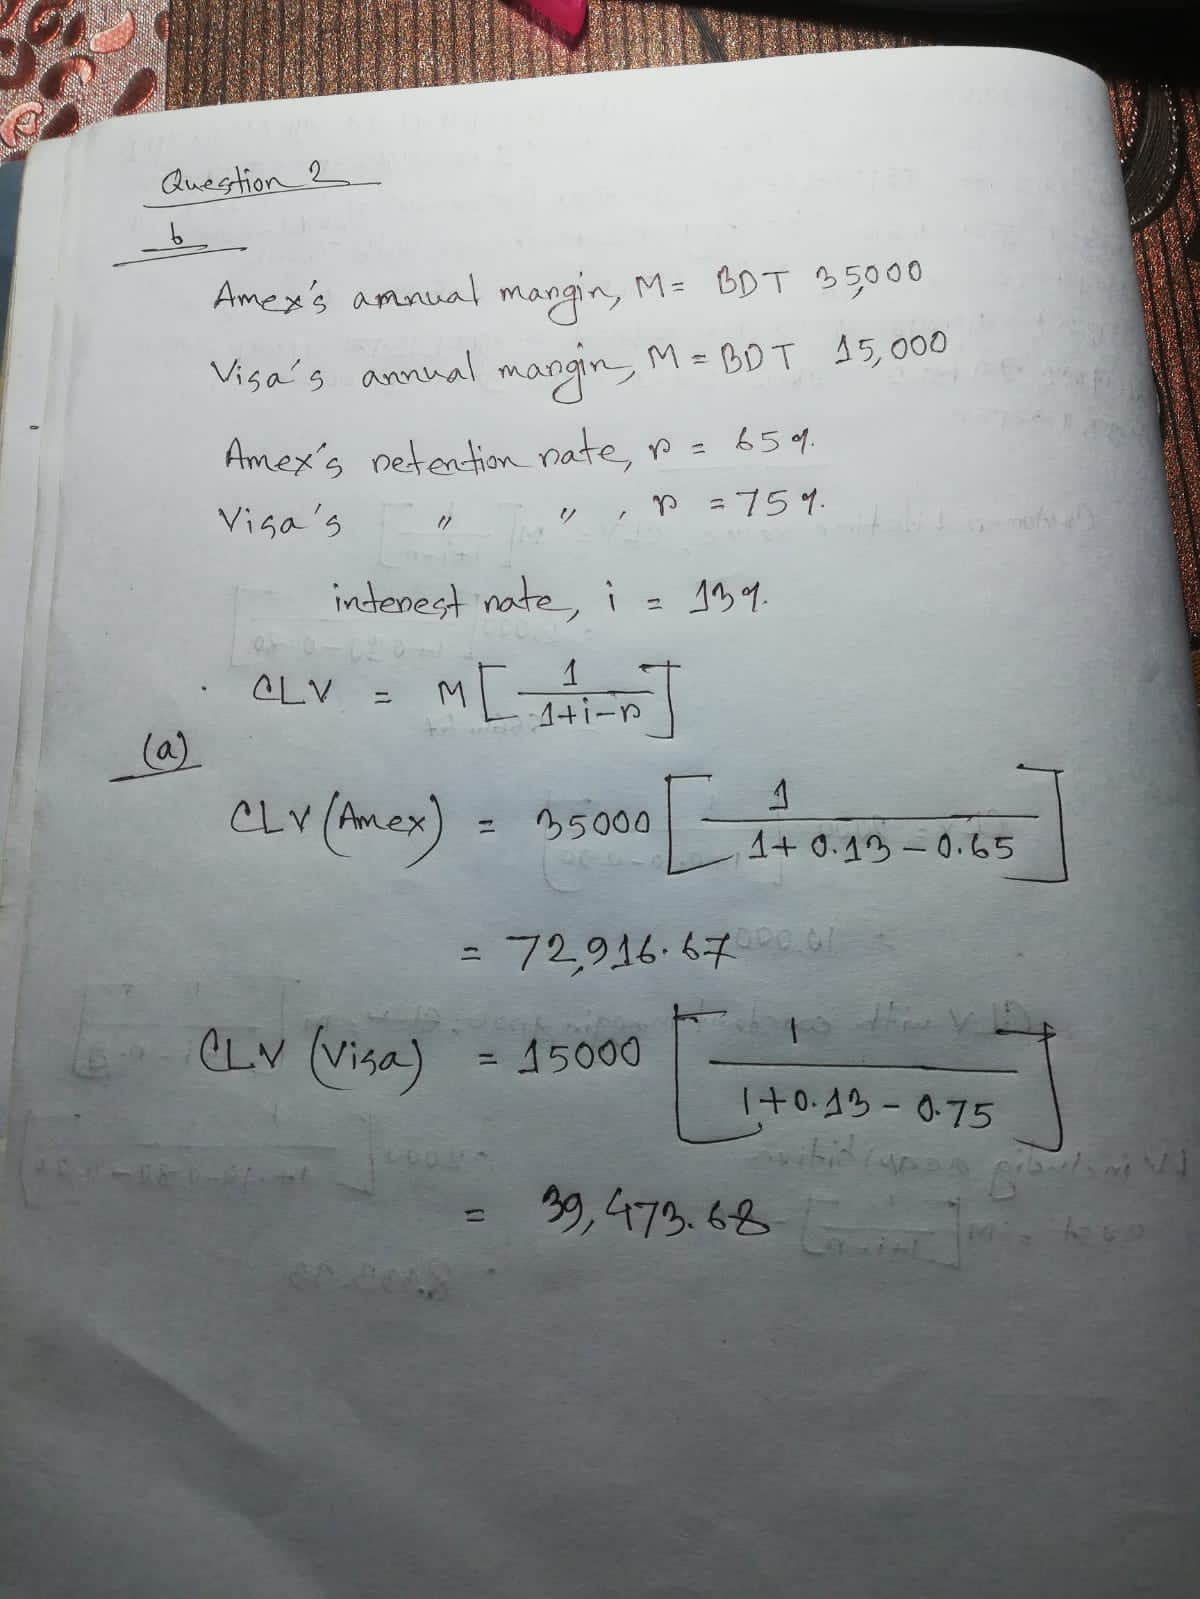 Question 2
b
Amex's amnual margin, M = BDT 35,000
Visa's annual margin, M = BDT 15,000
Amex's retention rate, r = 65%.
Visa's " " , r = 75%.
interest rate, i = 13%.
CLV = M[1/(1+i-r)]
(a)
CLV (Amex) = 35000[1/(1+0.13-0.65)]
= 72,916.67
CLV (Visa) = 15000[1/(1+0.13-0.75)]
= 39,473.68